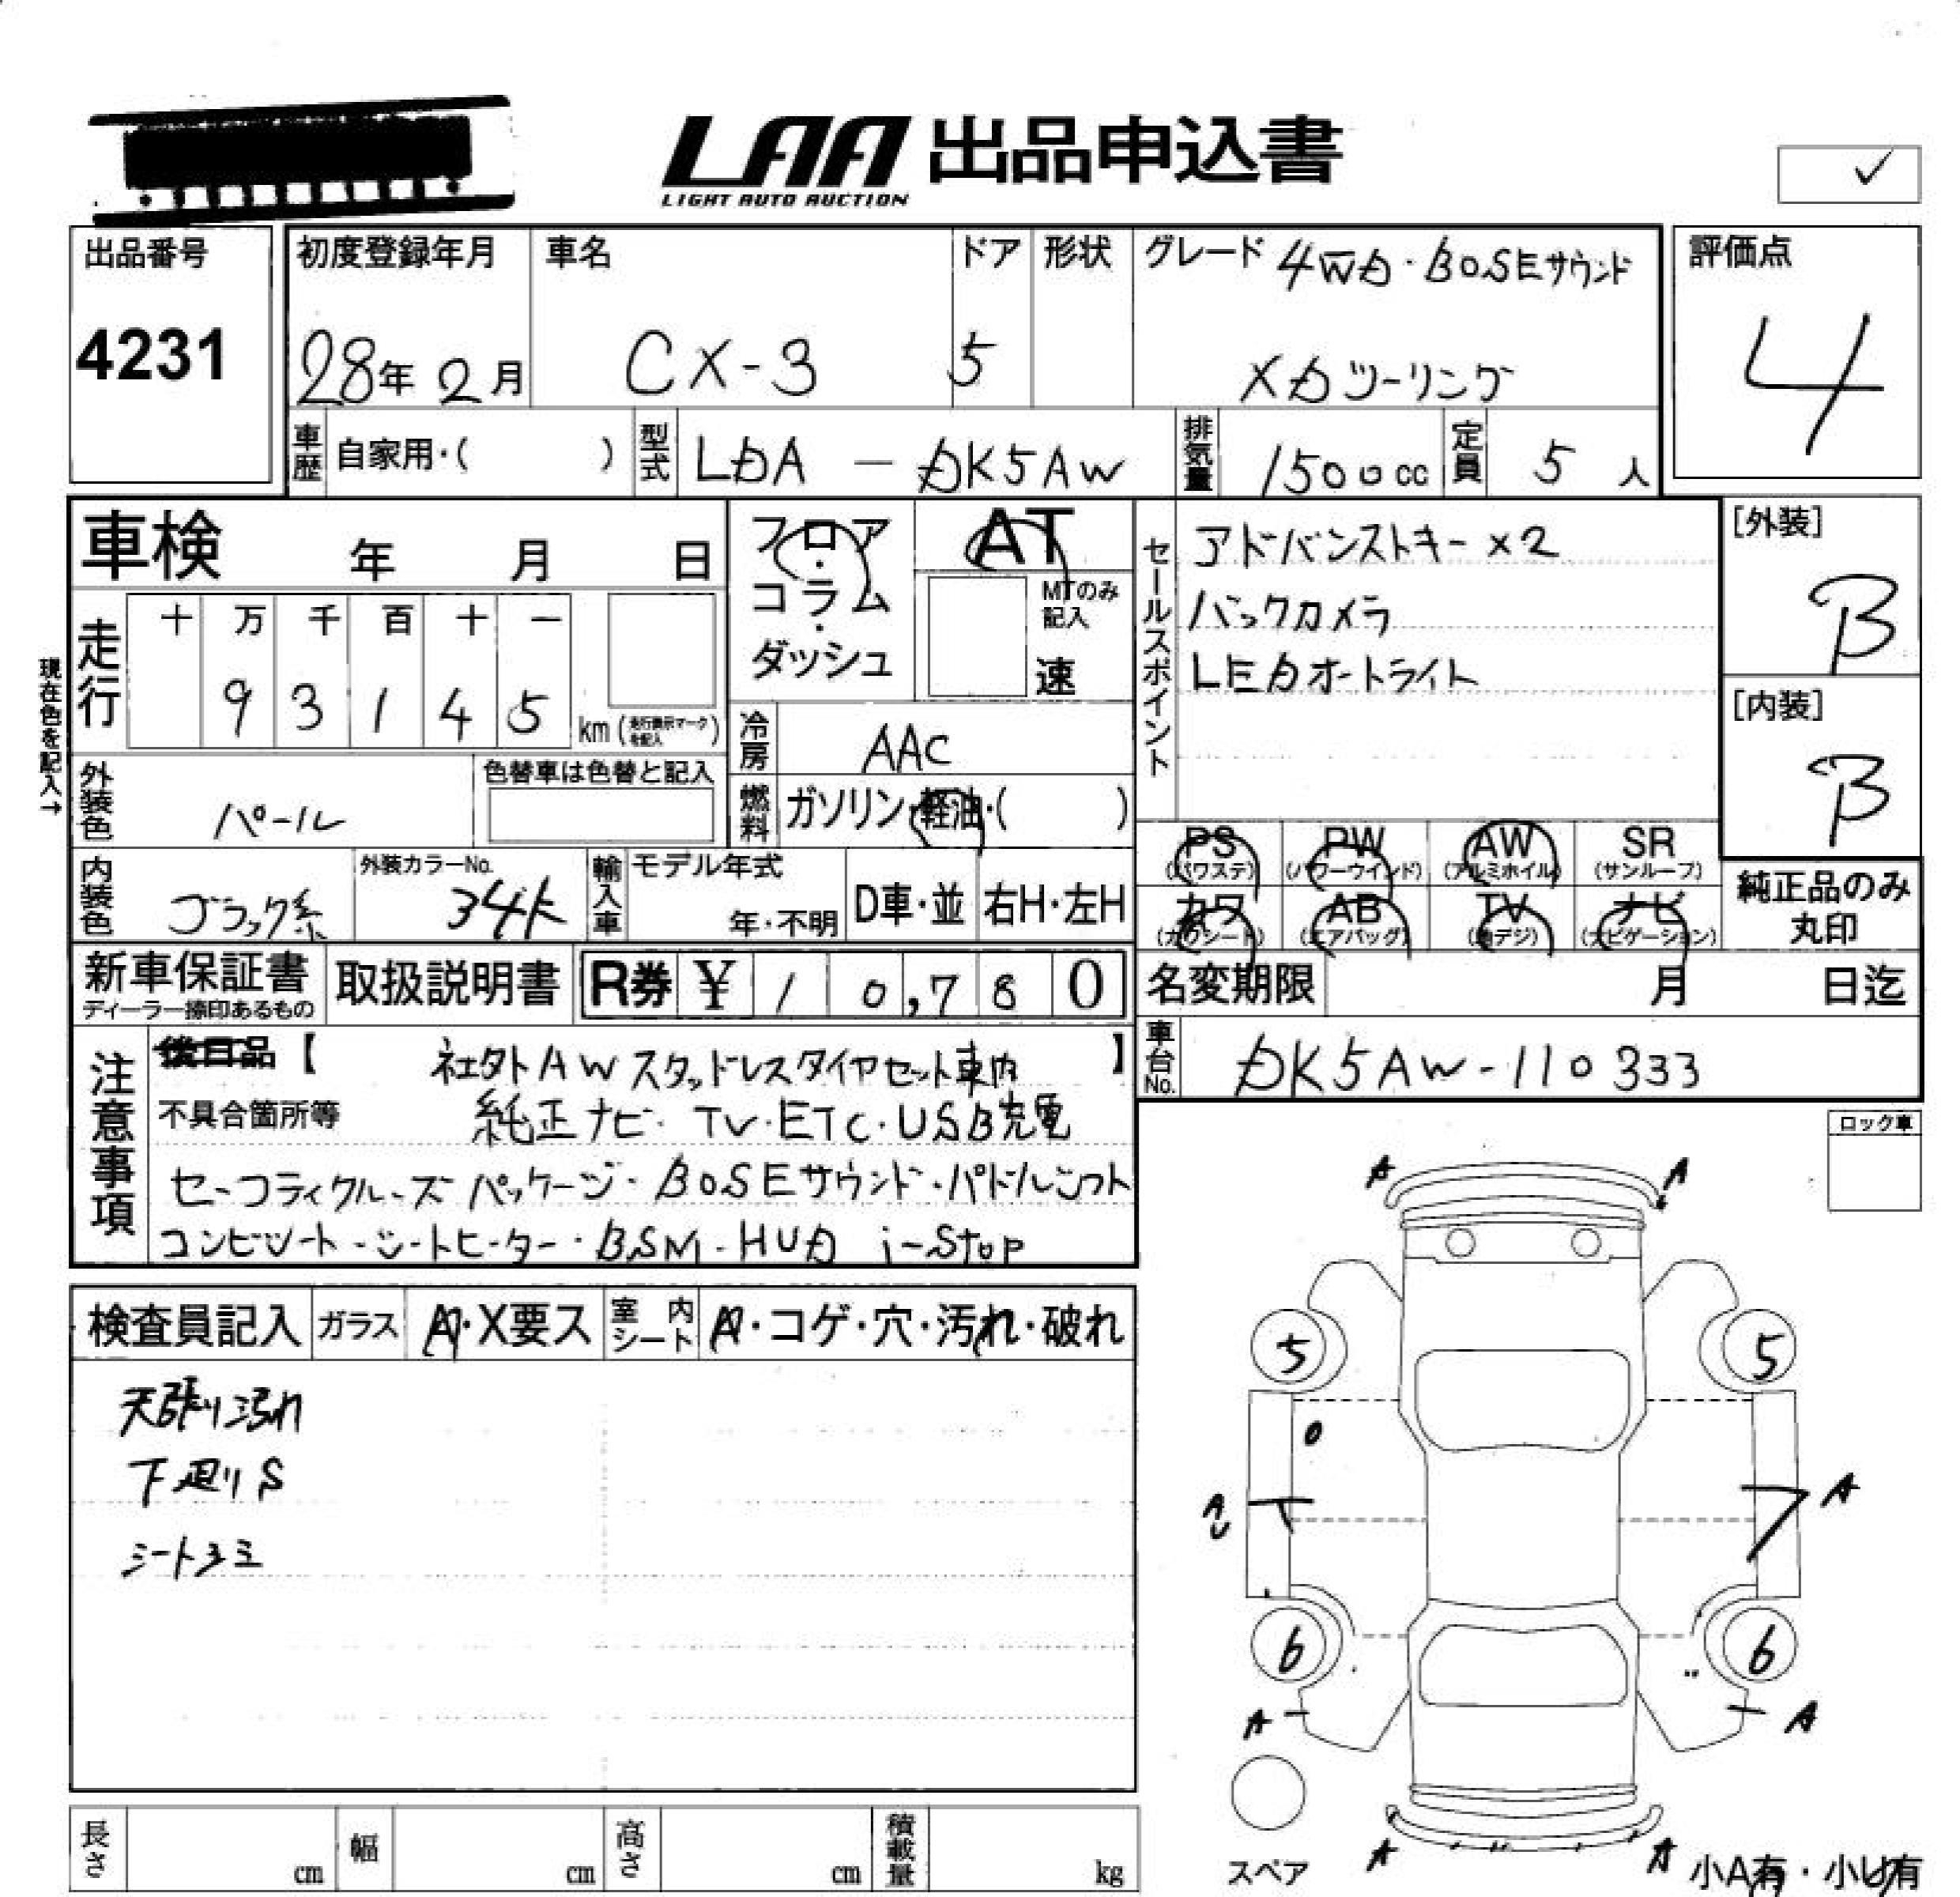 LAA 出品申込書
LIGHT AUTO AUCTION
出品番号
4231
初度登録年月
28年 2月
車名
CX-3
ドア
5
形状
グレード 4WD・BOSEサウンド
XDツーリング
評価点
4
車歴 自家用・( )
型式 LDA - DK5AW
排気量 1500cc
定員 5人
車検 年 月 日
フロア・コラム・ダッシュ
AT
MTのみ記入
速
セールスポイント
アドバンストキー×2
バックカメラ
LEDオートライト
[外装]
B
[内装]
B
現在色を記入→
走行
十 万 千 百 十 一
9 3 1 4 5 km (走行表示マークを記入)
冷房 AAC
燃料 ガソリン・軽油・( )
外装色 パール
色替車は色替と記入
内装色 ブラック系
外装カラーNo. 34K
輸入車
モデル年式
年・不明
D車・並
右H・左H
PS (パワステ)
PW (パワーウインド)
AW (アルミホイル)
SR (サンルーフ)
カワ (カワシート)
AB (エアバッグ)
TV (地デジ)
ナビ (ナビゲーション)
純正品のみ
丸印
新車保証書
ディーラー捺印あるもの
取扱説明書
R券 ¥ 10,780
名変期限 月 日迄
車台No. DK5AW-110333
注意事項
後日品【 社外AWスタッドレスタイヤセット車内 】
不具合箇所等 純正ナビ・TV・ETC・USB充電
セーフティクルーズパッケージ・BOSEサウンド・パドルシフト
コンビシート・シートヒーター・BSM・HUD i-stop
ロック車
検査員記入
ガラス A・X要ス
室内シート A・コゲ・穴・汚れ・破れ
天張り汚れ
下廻りS
シートシミ
A A
5 5
AU A
6 6
A A
A A
スペア
小A有・小U有
長さ cm
幅 cm
高さ cm
積載量 kg